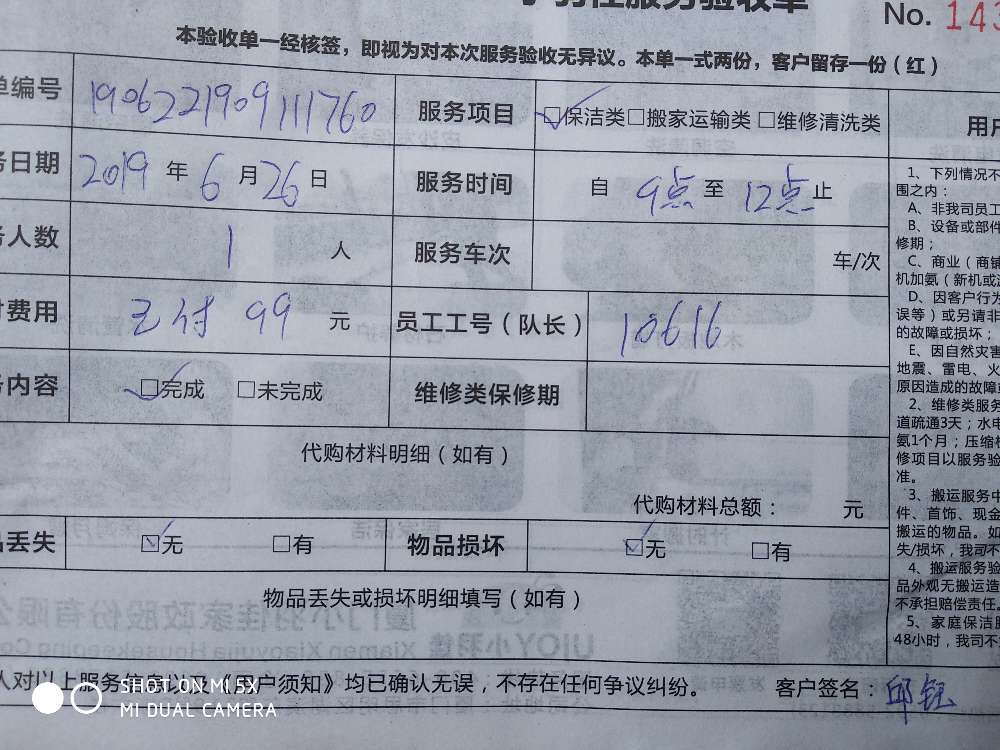 小羽佳服务验收单
No. 143
本验收单一经核签，即视为对本次服务验收无异议。本单一式两份，客户留存一份（红）
单编号 1906221909111760 服务项目 保洁类 搬家运输类 维修清洗类
务日期 2019 年 6 月 26 日 服务时间 自 9点 至 12点 止
务人数 1 人 服务车次 车/次
付费用 已付 99 元 员工工号（队长） 10616
务内容 完成 未完成 维修类保修期
代购材料明细（如有）
代购材料总额： 元
品丢失 无 有 物品损坏 无 有
物品丢失或损坏明细填写（如有）
人对以上服务信息以及《用户须知》均已确认无误，不存在任何争议纠纷。 客户签名：邱钰
用户
1、下列情况不
围之内：
A、非我司员工
B、设备或部件
修期；
C、商业（商铺
机加氨（新机或
D、因客户行为
误等）或另请非
的故障或损坏；
E、因自然灾害
地震、雷电、火
原因造成的故障或
2、维修类服务
道疏通3天；水电
氨1个月；压缩机
修项目以服务验
准。
3、搬运服务中
件、首饰、现金
搬运的物品。如
失/损坏，我司不
4、搬运服务验
品外观无搬运造
不承担赔偿责任。
5、家庭保洁服
48小时，我司不
SHOT ON MI 5X
MI DUAL CAMERA